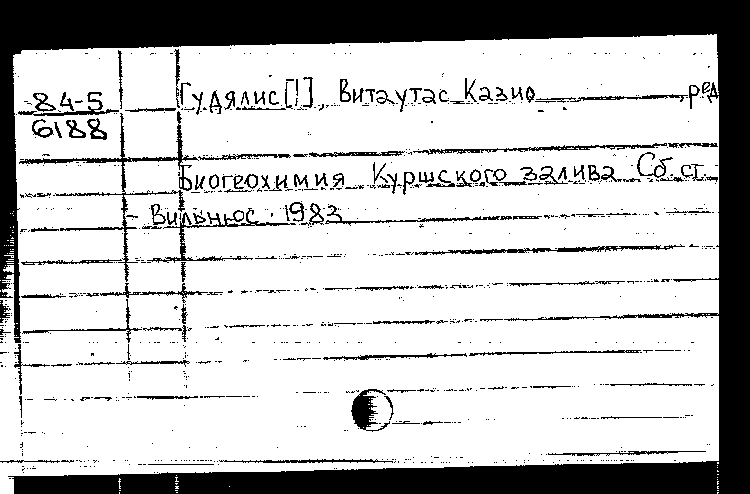 84-5
6188
Гудялис[1], Витаутас Казио , ред
Биогеохимия Куршского залива Сб. ст.
- Вильнюс. 1983